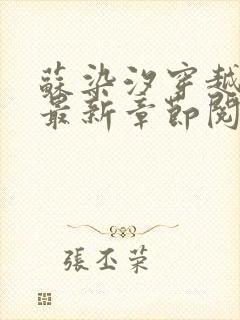 蘇染汐穿越
最新章節閱
張丕荣